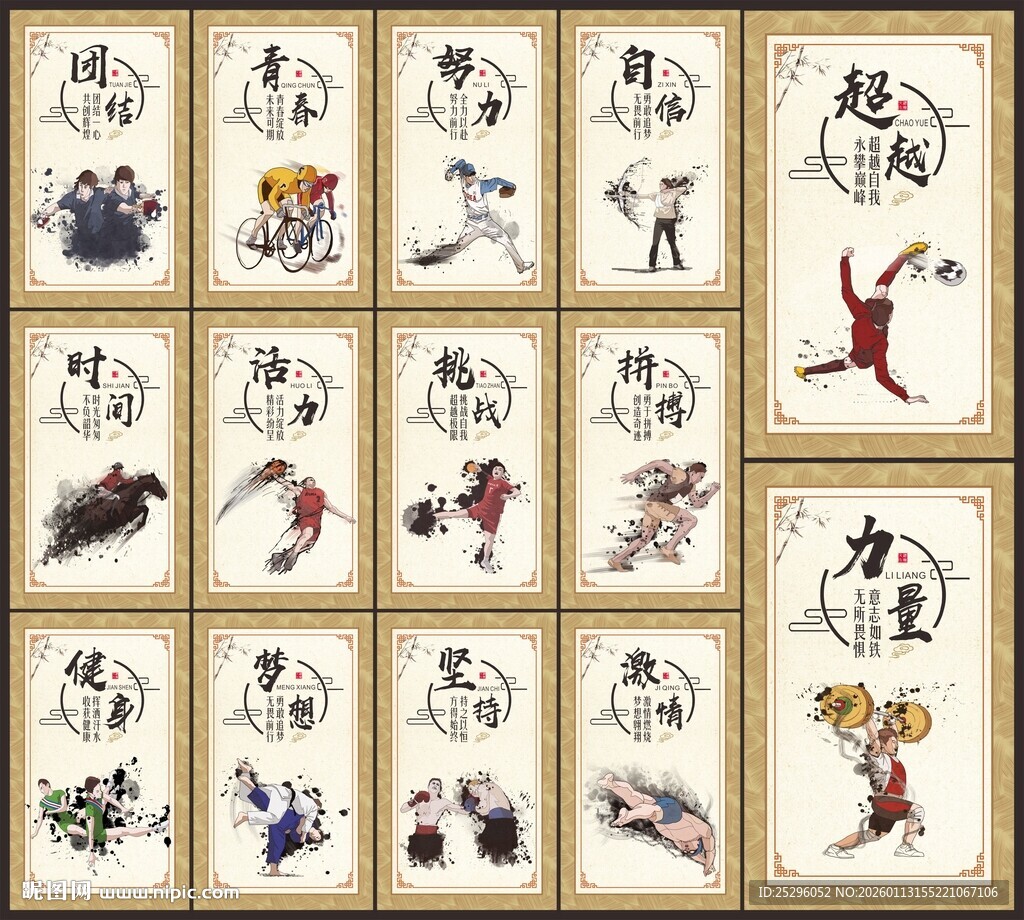 团结
TUAN JIE
团结一心
共创辉煌
青春
QING CHUN
青春绽放
未来可期
努力
NU LI
全力以赴
努力前行
自信
ZI XIN
勇敢追梦
无畏前行
超越
CHAO YUE
超越自我
永攀巅峰
时间
SHI JIAN
时光匆匆
不负韶华
活力
HUO LI
活力绽放
精彩纷呈
挑战
TIAO ZHAN
挑战自我
超越极限
拼搏
PIN BO
勇于拼搏
创造奇迹
力量
LI LIANG
意志如铁
无所畏惧
健身
JIAN SHEN
挥洒汗水
收获健康
梦想
MENG XIANG
勇敢追梦
无畏前行
坚持
JIAN CHI
持之以恒
方得始终
激情
JI QING
激情燃烧
梦想翱翔
昵图网 www.nipic.com
ID:25296052 NO:20260113155221067106